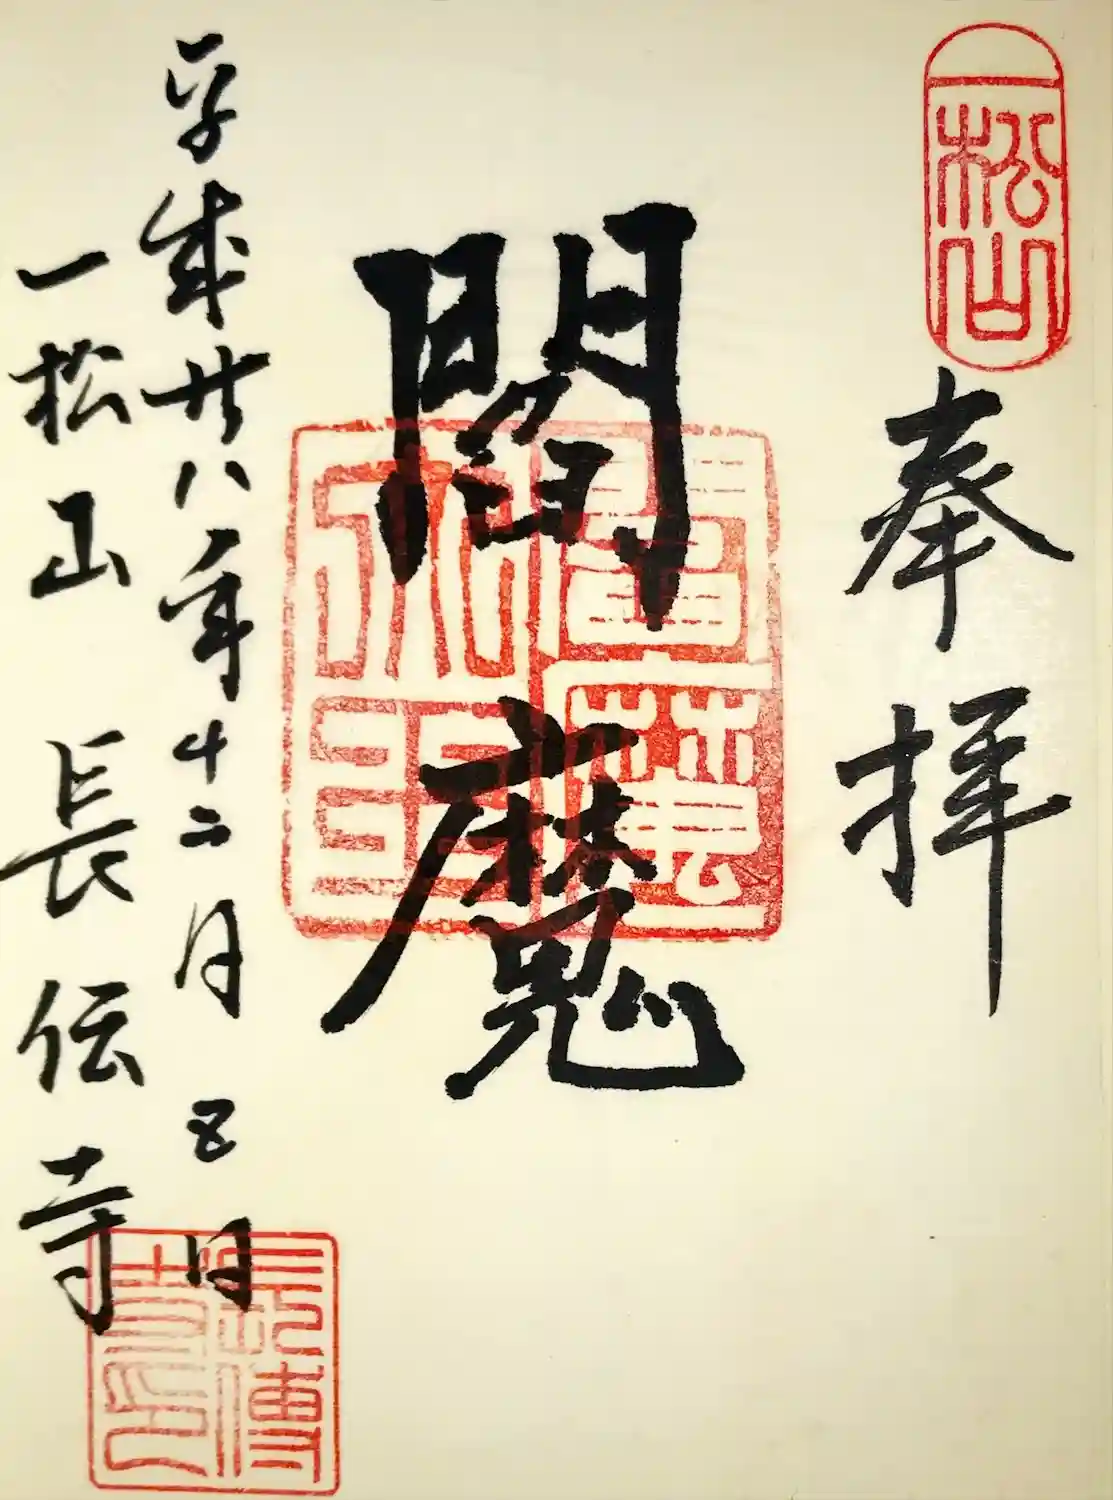 一松山
奉拝
閻魔
平成廿八年十二月五日
一松山長伝寺
長傳寺印